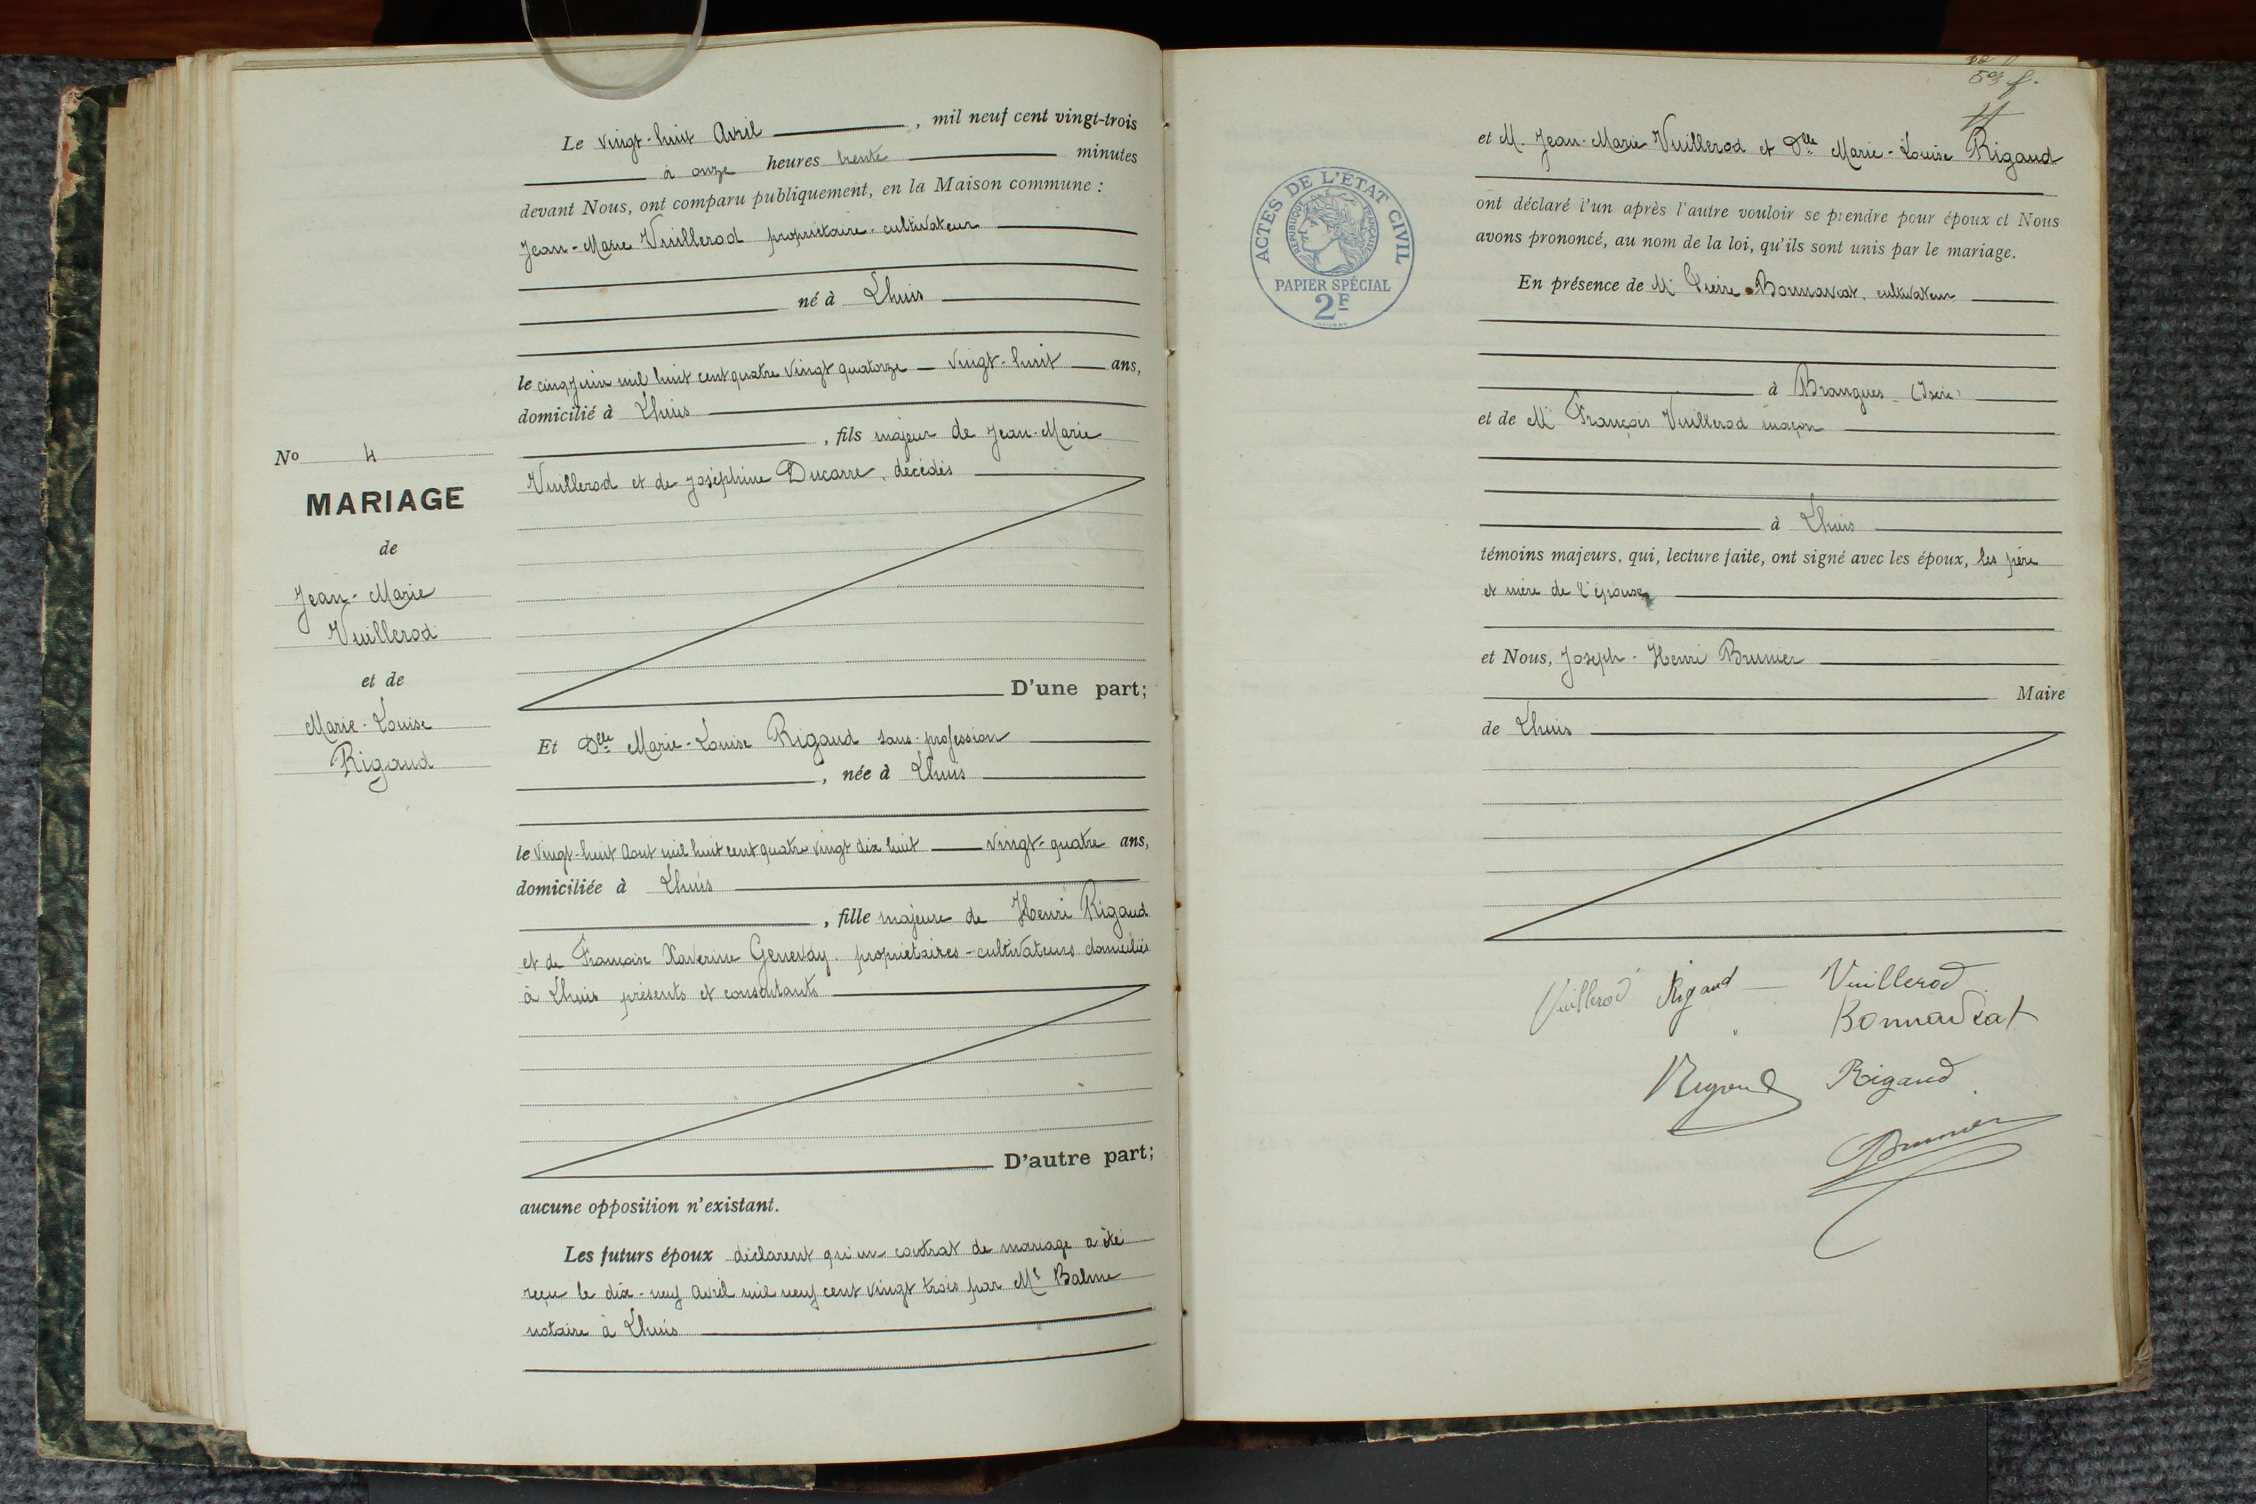 Le vingt-huit Avril, mil neuf cent vingt-trois
à onze heures trente minutes
devant Nous, ont comparu publiquement, en la Maison commune :
Jean-Marie Vuillerod propriétaire-cultivateur
né à Lhuis
le cinq Juin mil huit cent quatre vingt quatorze — vingt-huit ans,
domicilié à Lhuis
, fils majeur de Jean-Marie
Vuillerod et de Joséphine Ducarre, décédés
No 4
MARIAGE
de
Jean-Marie
Vuillerod
et de
Marie-Louise
Rigaud
D'une part;
Et Dlle Marie-Louise Rigaud sans-profession
, née à Lhuis
le vingt-huit Aout mil huit cent quatre vingt dix huit — vingt-quatre ans,
domiciliée à Lhuis
, fille majeure de Henri Rigaud
et de Françoise Xaverine Genevay. propriétaires-cultivateurs domiciliés
à Lhuis présents et consentants
D'autre part;
aucune opposition n'existant.
Les futurs époux déclarent qu'un contrat de mariage a été
reçu le dix-neuf Avril mil neuf cent vingt trois par Me Balme
notaire à Lhuis
59 f.
et M. Jean-Marie Vuillerod et Dlle Marie-Louise Rigaud
ACTES DE L'ETAT CIVIL
REPUBLIQUE FRANÇAISE
PAPIER SPÉCIAL
2F
ont déclaré l'un après l'autre vouloir se prendre pour époux et Nous
avons prononcé, au nom de la loi, qu'ils sont unis par le mariage.
En présence de Mr Pierre Bonnaveat, cultivateur
à Brangues (Isère)
et de Mr François Vuillerod maçon
à Lhuis
témoins majeurs, qui, lecture faite, ont signé avec les époux, les père
et mère de l'épouse
et Nous, Joseph-Henri Brunier
Maire
de Lhuis
Vuillerod Rigaud Vuillerod
Bonnavxat
Rigaud Rigaud
Brunier